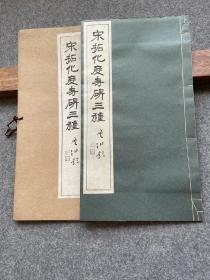 宋拓化度寺碑三種
宋拓化度寺碑三種